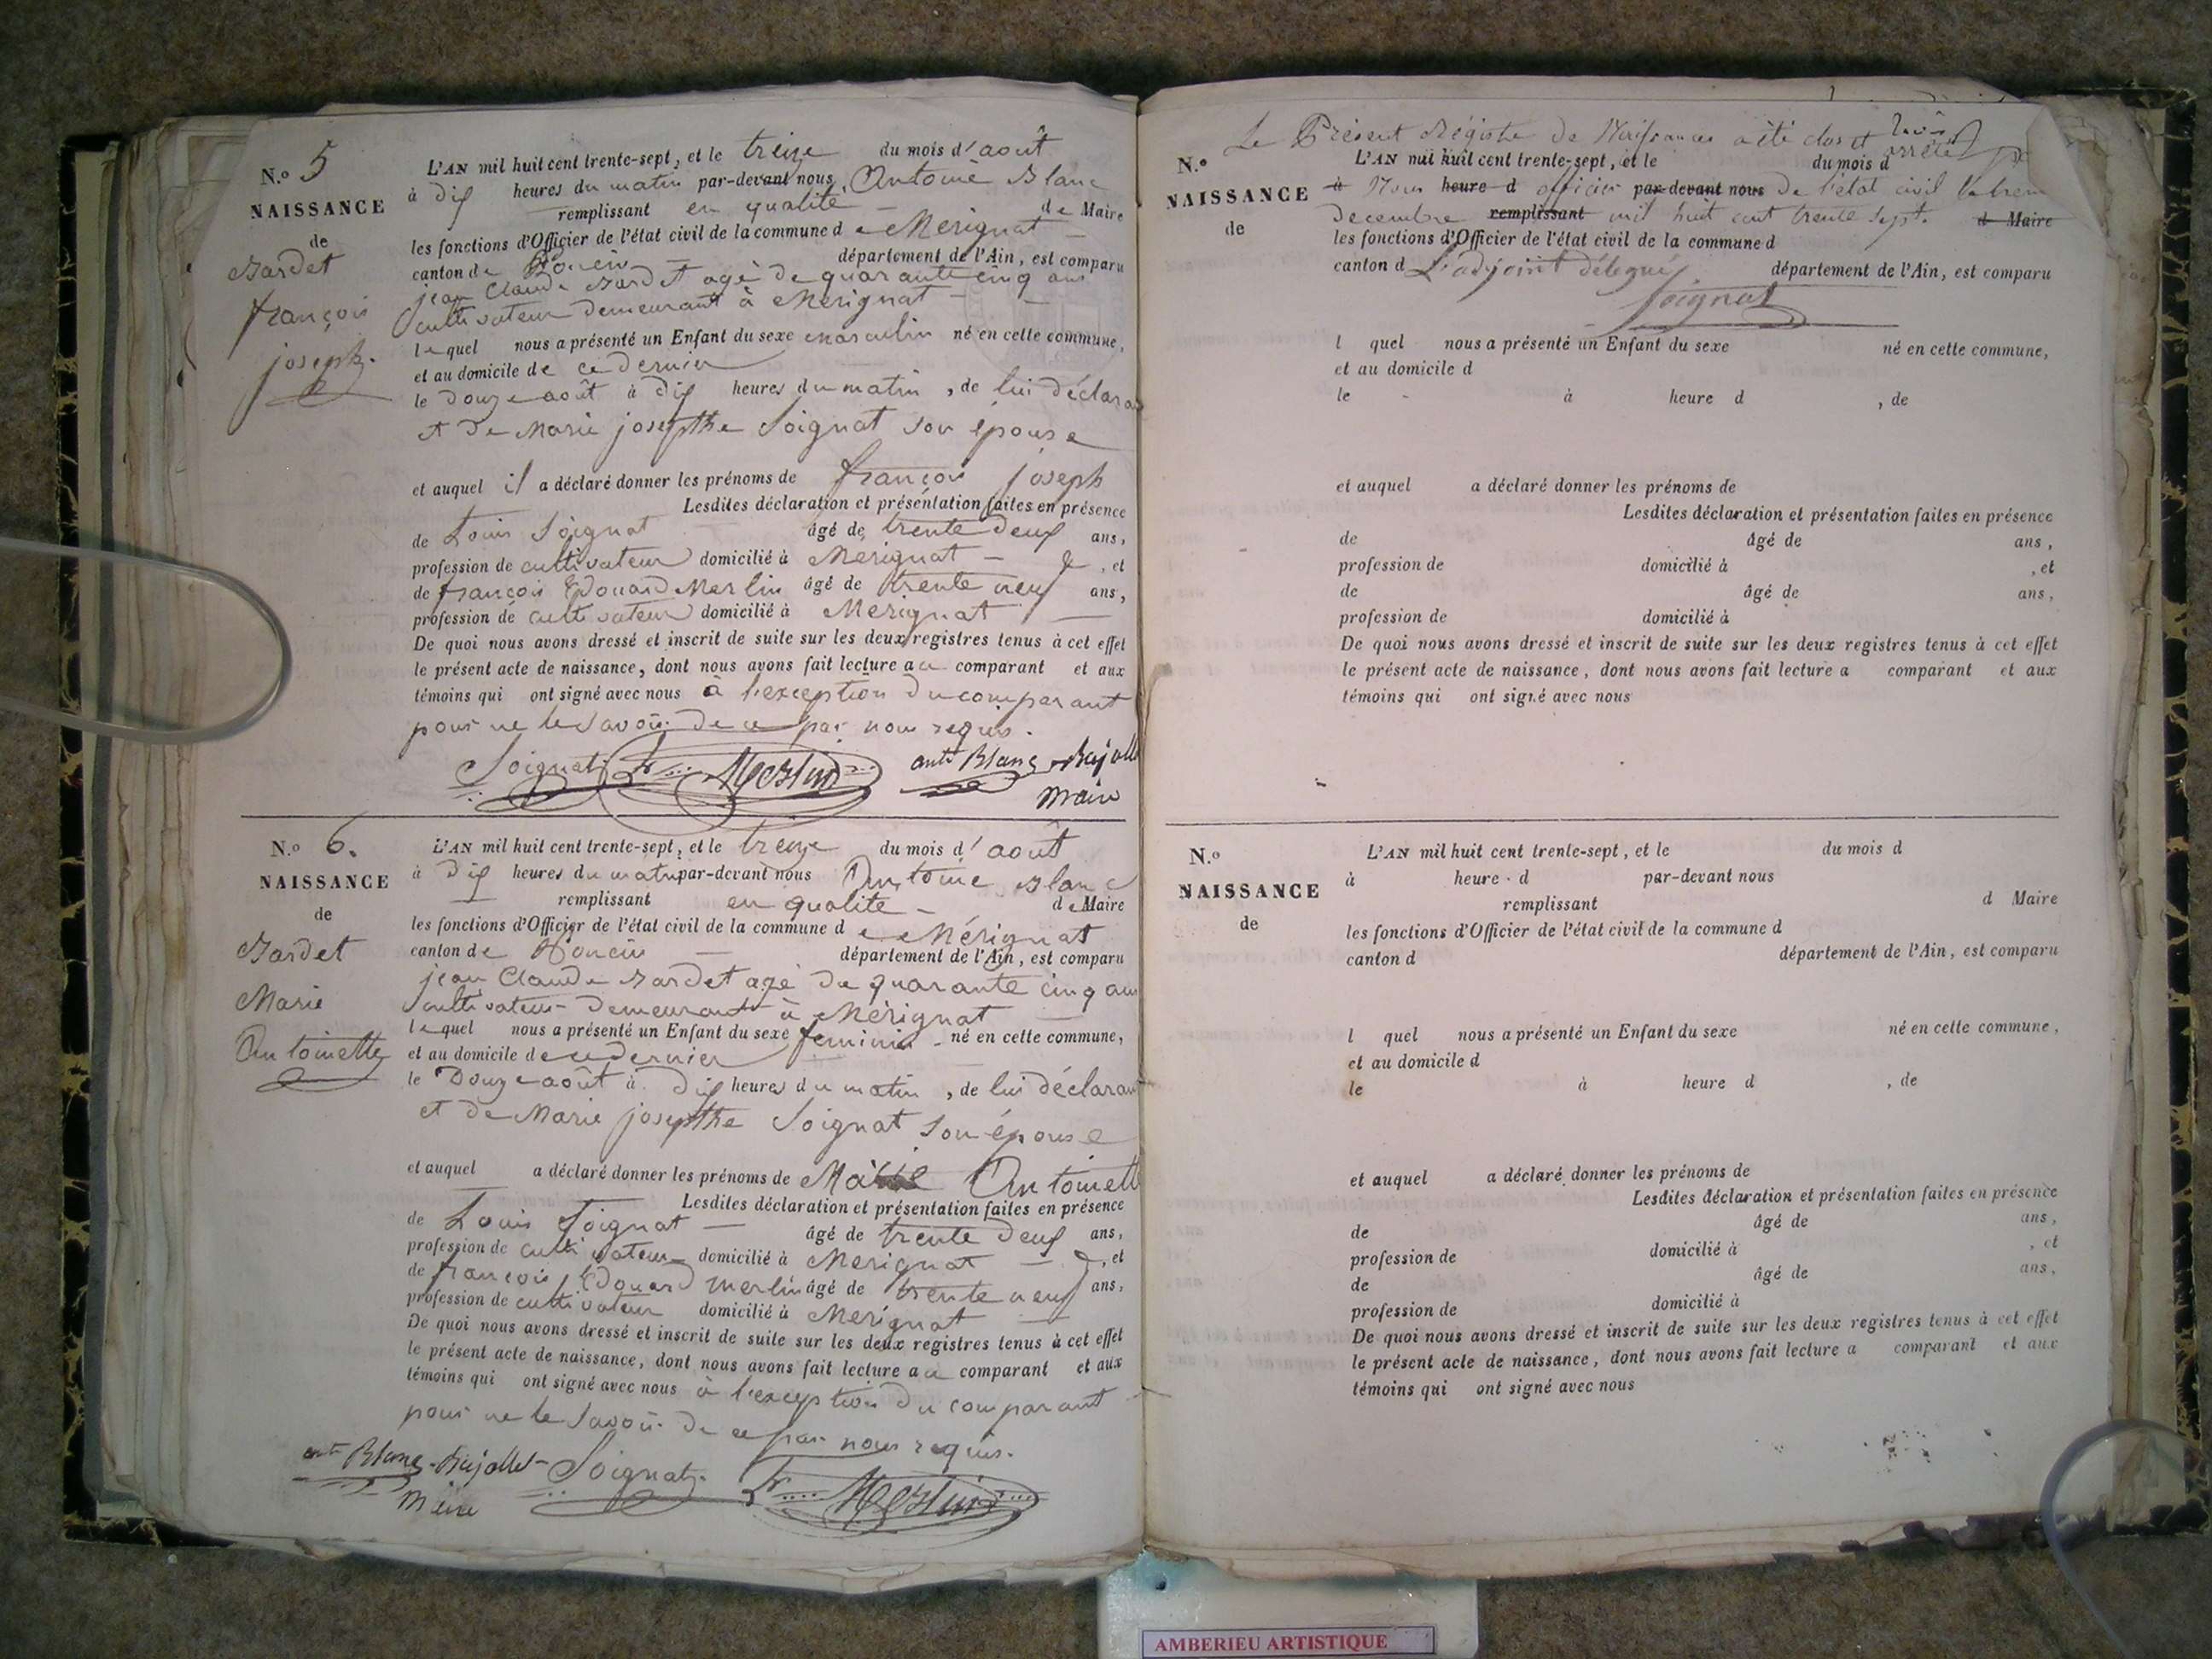 N.o 5
NAISSANCE
de
Jardet
françois
joseph.
L'AN mil huit cent trente-sept, et le treize du mois d'août
à dix heures du matin par-devant nous, Antoine Blanc
remplissant en qualité de Maire
les fonctions d'Officier de l'état civil de la commune de Merignat
canton de Poncin département de l'Ain, est comparu
jean Claude Jardet agé de quarante cinq ans
cultivateur demeurant à Merignat
lequel nous a présenté un Enfant du sexe masculin né en cette commune,
et au domicile de ce dernier
le Douze août à dix heures du matin, de lui déclarant
et de Marie josepthe Soignat son épouse
et auquel il a déclaré donner les prénoms de françois joseph
Lesdites déclaration et présentation faites en présence
de Louis Soignat âgé de trente deux ans,
profession de cultivateur domicilié à Merignat , et
de françois Edouard Merlin âgé de trente neuf ans,
profession de cultivateur domicilié à Merignat
De quoi nous avons dressé et inscrit de suite sur les deux registres tenus à cet effet
le présent acte de naissance, dont nous avons fait lecture au comparant et aux
témoins qui ont signé avec nous à l'exception du comparant
pour ne le savoir de ce par nous requis.
Soignat fr Merlin ant Blanc-Bajollet
maire
N.o 6.
NAISSANCE
de
Jardet
Marie
Antoinette
L'AN mil huit cent trente-sept, et le treize du mois d'août
à Dix heures du matin par-devant nous Antoine Blanc
remplissant en qualité de Maire
les fonctions d'Officier de l'état civil de la commune de Mérignat
canton de Poncin département de l'Ain, est comparu
jean Claude Jardet agé de quarante cinq ans
cultivateur demeurant à Mérignat
lequel nous a présenté un Enfant du sexe feminin né en cette commune,
et au domicile de ce dernier
le Douze août à dix heures du matin, de lui déclarant
et de Marie josepthe Soignat son épouse
et auquel a déclaré donner les prénoms de Marie Antoinett
Lesdites déclaration et présentation faites en présence
de Louis Soignat âgé de trente deux ans,
profession de cultivateur domicilié à Merignat , et
de françois Edouard Merlin âgé de trente neuf ans,
profession de cultivateur domicilié à Merignat
De quoi nous avons dressé et inscrit de suite sur les deux registres tenus à cet effet
le présent acte de naissance, dont nous avons fait lecture au comparant et aux
témoins qui ont signé avec nous à l'exception du comparant
pour ne le savoir de ce par nous requis.
ant Blanc-Bajollet Soignat fr Merlin
Maire
Le Présent Régistre de Naissances a été clos et arrêté par
N.o
L'AN mil huit cent trente-sept, et le du mois d
NAISSANCE
à Nous heure d officier par-devant nous de l'état civil
decembre remplissant mil huit cent trente sept. d Maire
de
les fonctions d'Officier de l'état civil de la commune d
canton d L'adjoint délegué département de l'Ain, est comparu
Soignat
l quel nous a présenté un Enfant du sexe né en cette commune,
et au domicile d
le à heure d , de
et auquel a déclaré donner les prénoms de
Lesdites déclaration et présentation faites en présence
de âgé de ans,
profession de domicilié à , et
de âgé de ans,
profession de domicilié à
De quoi nous avons dressé et inscrit de suite sur les deux registres tenus à cet effet
le présent acte de naissance, dont nous avons fait lecture a comparant et aux
témoins qui ont signé avec nous
N.o
NAISSANCE
de
L'AN mil huit cent trente-sept, et le du mois d
à heure d par-devant nous
remplissant d Maire
les fonctions d'Officier de l'état civil de la commune d
canton d département de l'Ain, est comparu
l quel nous a présenté un Enfant du sexe né en cette commune,
et au domicile d
le à heure d , de
et auquel a déclaré donner les prénoms de
Lesdites déclaration et présentation faites en présence
de âgé de ans,
profession de domicilié à , et
de âgé de ans,
profession de domicilié à
De quoi nous avons dressé et inscrit de suite sur les deux registres tenus à cet effet
le présent acte de naissance, dont nous avons fait lecture a comparant et aux
témoins qui ont signé avec nous
AMBERIEU ARTISTIQUE